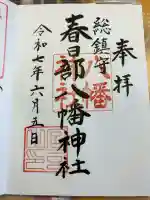 奉拝
総鎮守
八幡
神社
春日部八幡神社
令和七年六月五日